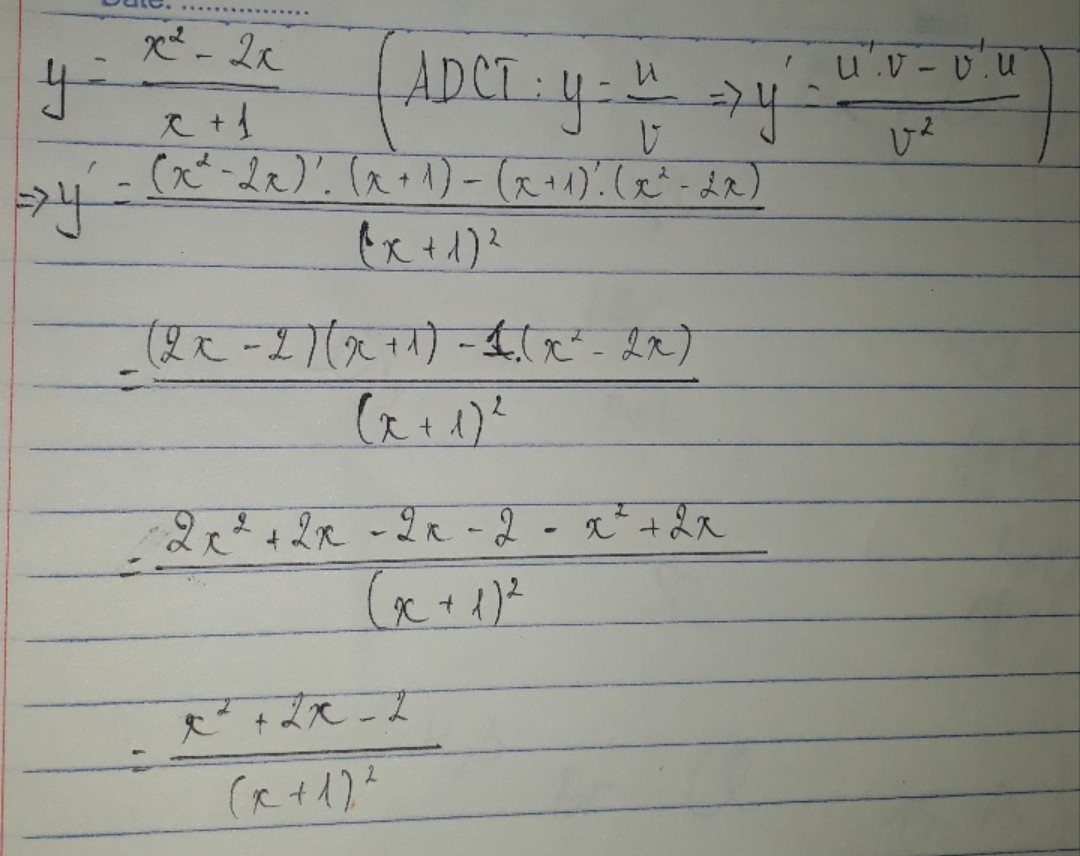 Date: ................
y = \frac{x² - 2x}{x + 1} (ADCT: y = \frac{u}{v} => y' = \frac{u'.v - v'.u}{v²})
=> y' = \frac{(x² - 2x)'. (x + 1) - (x+1)'. (x² - 2x)}{(x + 1)²}
= \frac{(2x - 2)(x + 1) - 1.(x² - 2x)}{(x + 1)²}
= \frac{2x² + 2x - 2x - 2 - x² + 2x}{(x + 1)²}
= \frac{x² + 2x - 2}{(x + 1)²}